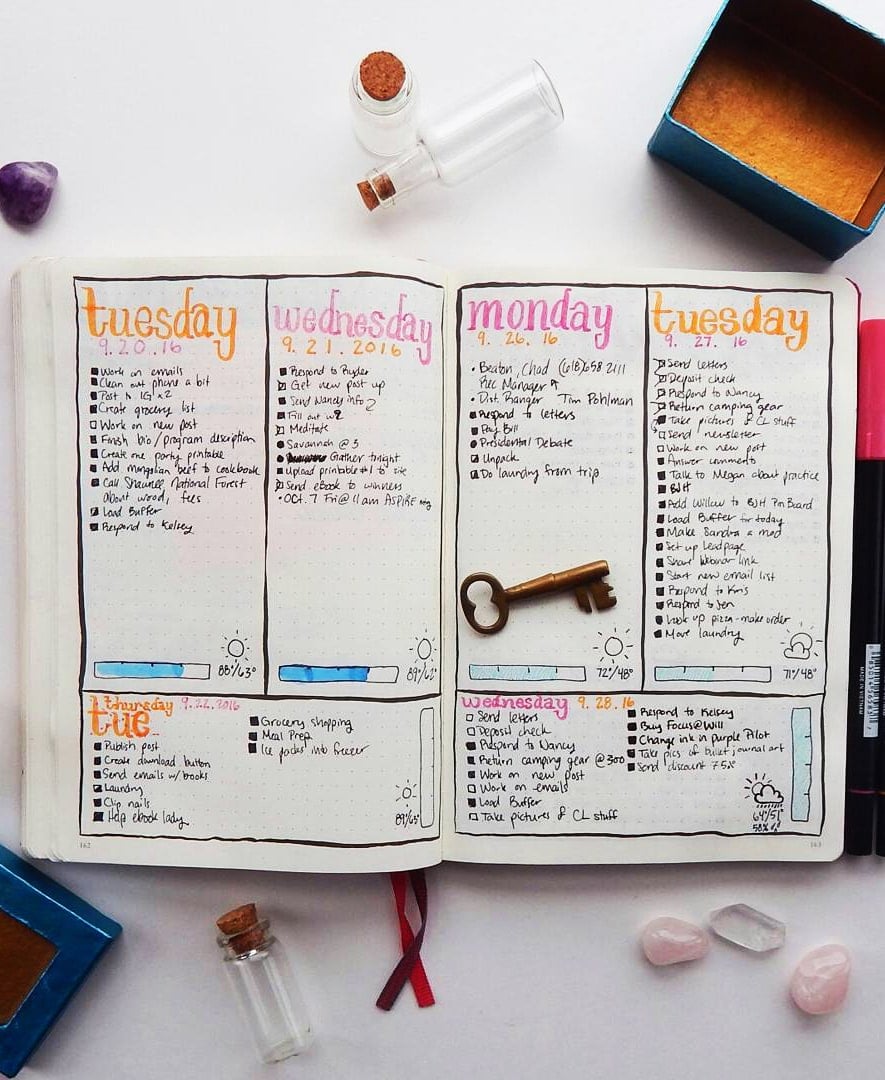 tuesday
9.20.16
Work on emails
Clean out phone a bit
Post to IG x2
Create grocery list
Work on new post
Finish bio/program description
Create one party printable
Add mongolian beef to cookbook
Call Shawnee National Forest
about wood, fees
Load Buffer
Respond to Kelsey
88°/63°
wednesday
9.21.2016
Respond to Ryder
Get new post up
Send Wandy info
Fill out w9
Meditate
Savannah @ 3
Gather tnight
Upload printable #1 to site
Send eBook to winners
OCT. 7 Fri @ 11am ASPIRE mtg
thursday 9.22.2016
tue...
Publish post
Create download button
Send emails w/ books
Laundry
Clip nails
Help ebook lady
Grocery shopping
Meal Prep
Ice packs into freezer
89°/65°
162
monday
9.26.16
Beaton, Chad (618) 658 2111
Rec Manager
Dist. Ranger Tim Pohlman
Respond to letters
Pay Bill
Presidental Debate
Unpack
Do laundry from trip
72°/48°
tuesday
9.27.16
Send letters
Deposit check
Respond to Nancy
Return camping gear
Take pictures of CL stuff
Send newsletter
Work on new post
Answer comments
Talk to Megan about practice
BJH
Add Willow to BJH Pin Board
Load Buffer for today
Make Sandra a mod
Set up Leadpage
Share Webinar link
Start new email list
Respond to Kris
Respond to Jen
Look up pizza - make order
Move laundry
71°/48°
wednesday 9.28.16
Send letters
Deposit check
Respond to Nancy
Return camping gear @300
Work on new post
Work on emails
Load Buffer
Take pictures of CL stuff
Respond to Kelsey
Buy Focus@Will
Change ink in purple Pilot
Take pics of bullet journal art
Send discount 75%
64°/51°
58%
163
MADE IN VIETNAM